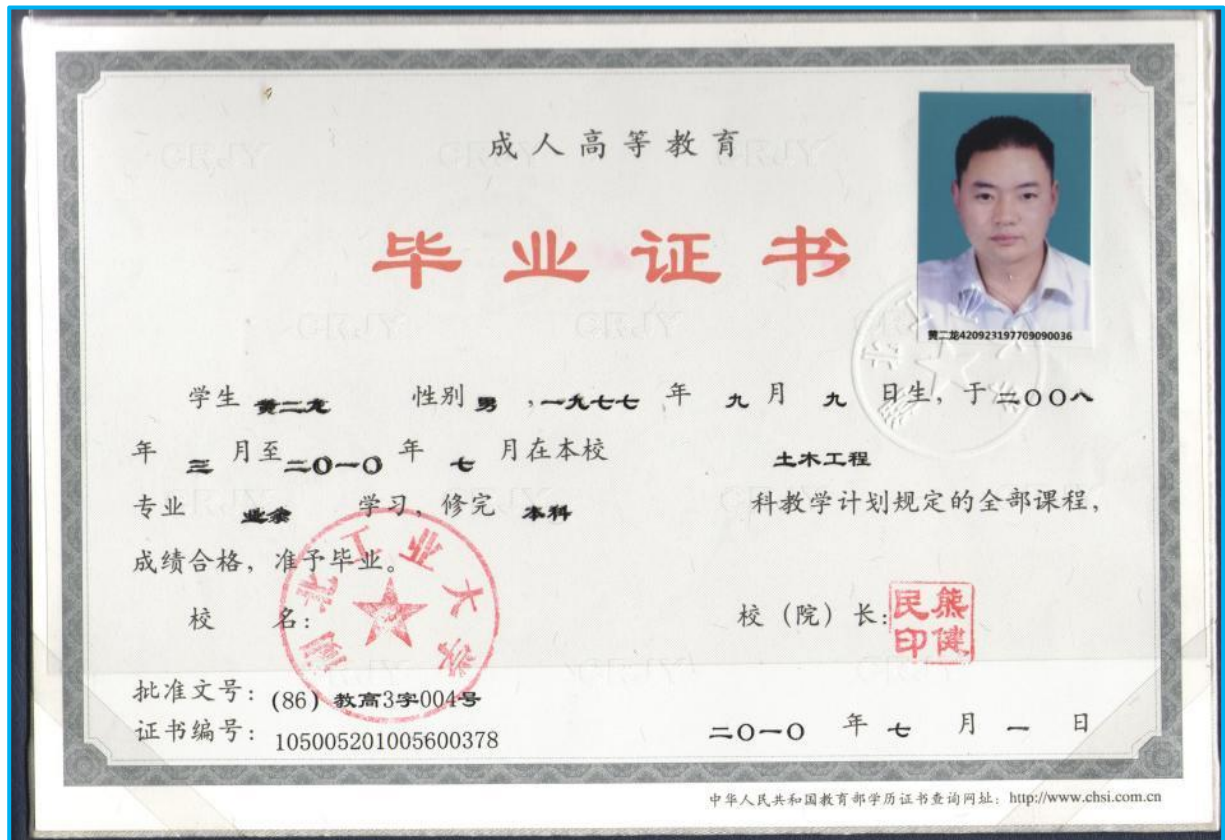 成人高等教育
毕业证书
黄二龙420923197709090036
学生 黄二龙 性别 男 ,一九七七 年 九 月 九 日生，于 二〇〇八
年 三 月至 二〇一〇 年 七 月在本校 土木工程
专业 业余 学习，修完 本科 科教学计划规定的全部课程，
成绩合格，准予毕业。
湖北工业大学
校 名： 校（院）长：
熊健民印
批准文号：(86) 教高3字004号
证书编号：105005201005600378
二〇一〇 年 七 月 一 日
中华人民共和国教育部学历证书查询网址：http://www.chsi.com.cn